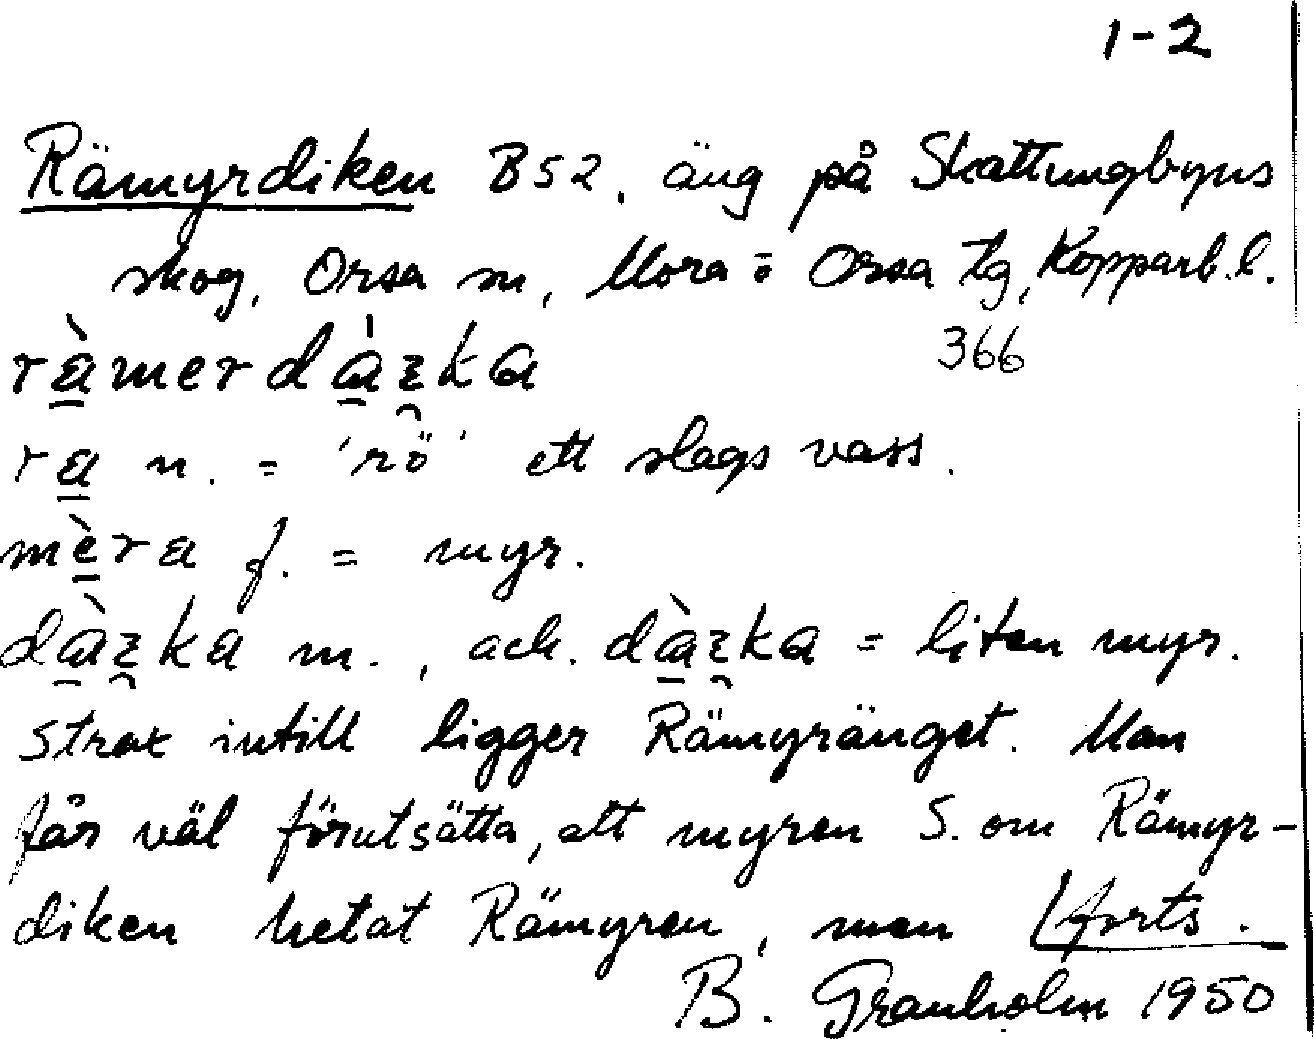 1-2
Rämyrdiken B52. äng på Skattungbyns
skog, Orsa sn, Mora o Orsa tg, Kopparb. l.
366
rä̀merdàzka
rä n. = 'rö' ett slags vass.
mèra f. = myr.
dàzka m., ack. dàzka = liten myr.
Strax intill ligger Rämyränget. Man
får väl förutsätta, att myren S. om Rämyr-
diken hetat Rämyren, men forts.
B. Granholm 1950